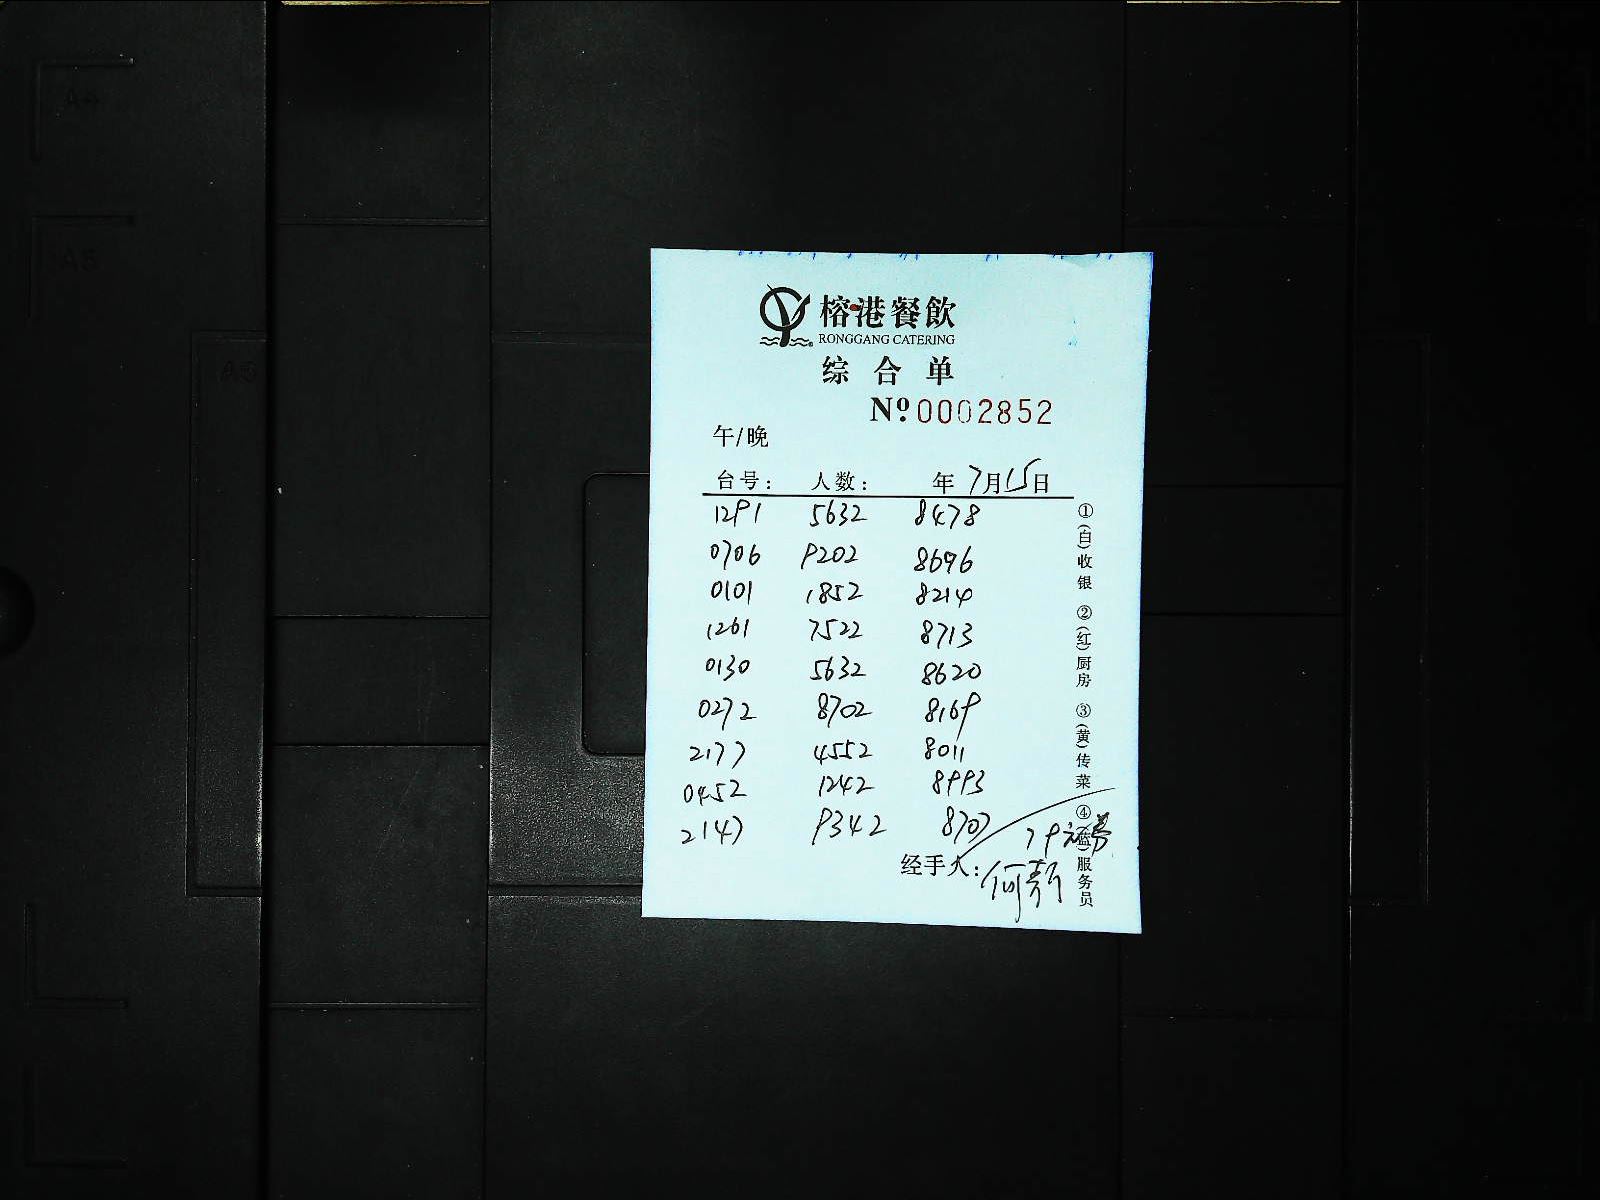 榕港餐飲
RONGGANG CATERING
综合单
Nº 0002852
午/晚
台号: 人数: 年 7月15日
1291 5632 8478
0706 9202 8696
0101 1852 8214
1261 7522 8713
0130 5632 8620
0272 8702 8169
2177 4552 8011
0452 1242 8993
2147 9342 8707
79元券
经手人:
①(白)收银 ②(红)厨房 ③(黄)传菜 ④(蓝)服务员